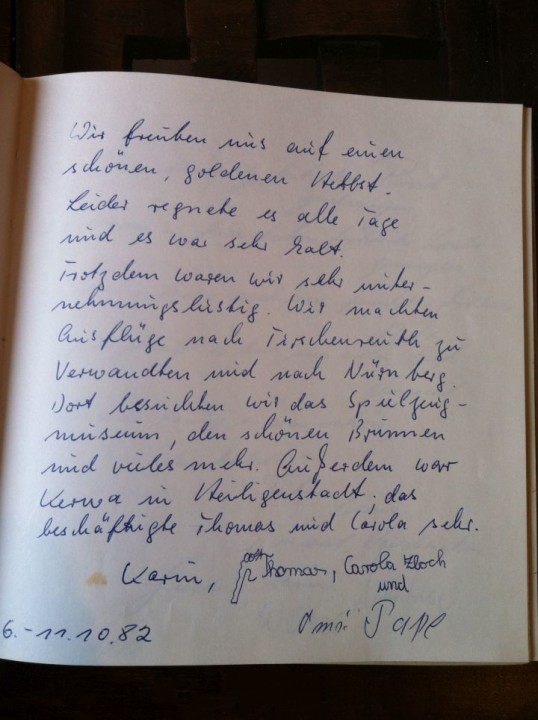 Wir freuten uns auf einen
schönen, goldenen Herbst.
Leider regnete es alle Tage
und es war sehr kalt.
Trotzdem waren wir sehr unter-
nehmungslustig. Wir machten
Ausflüge nach Tirschenreuth zu
Verwandten und nach Nürnberg.
Dort besuchten wir das Spielzeug-
museum, den schönen Brunnen
und vieles mehr. Außerdem war
Kerwa in Heiligenstadt, das
beschäftigte Thomas und Carola sehr.
Karin, Thomas, Carola Zloch
und
Omi Pape
6.-11.10.82